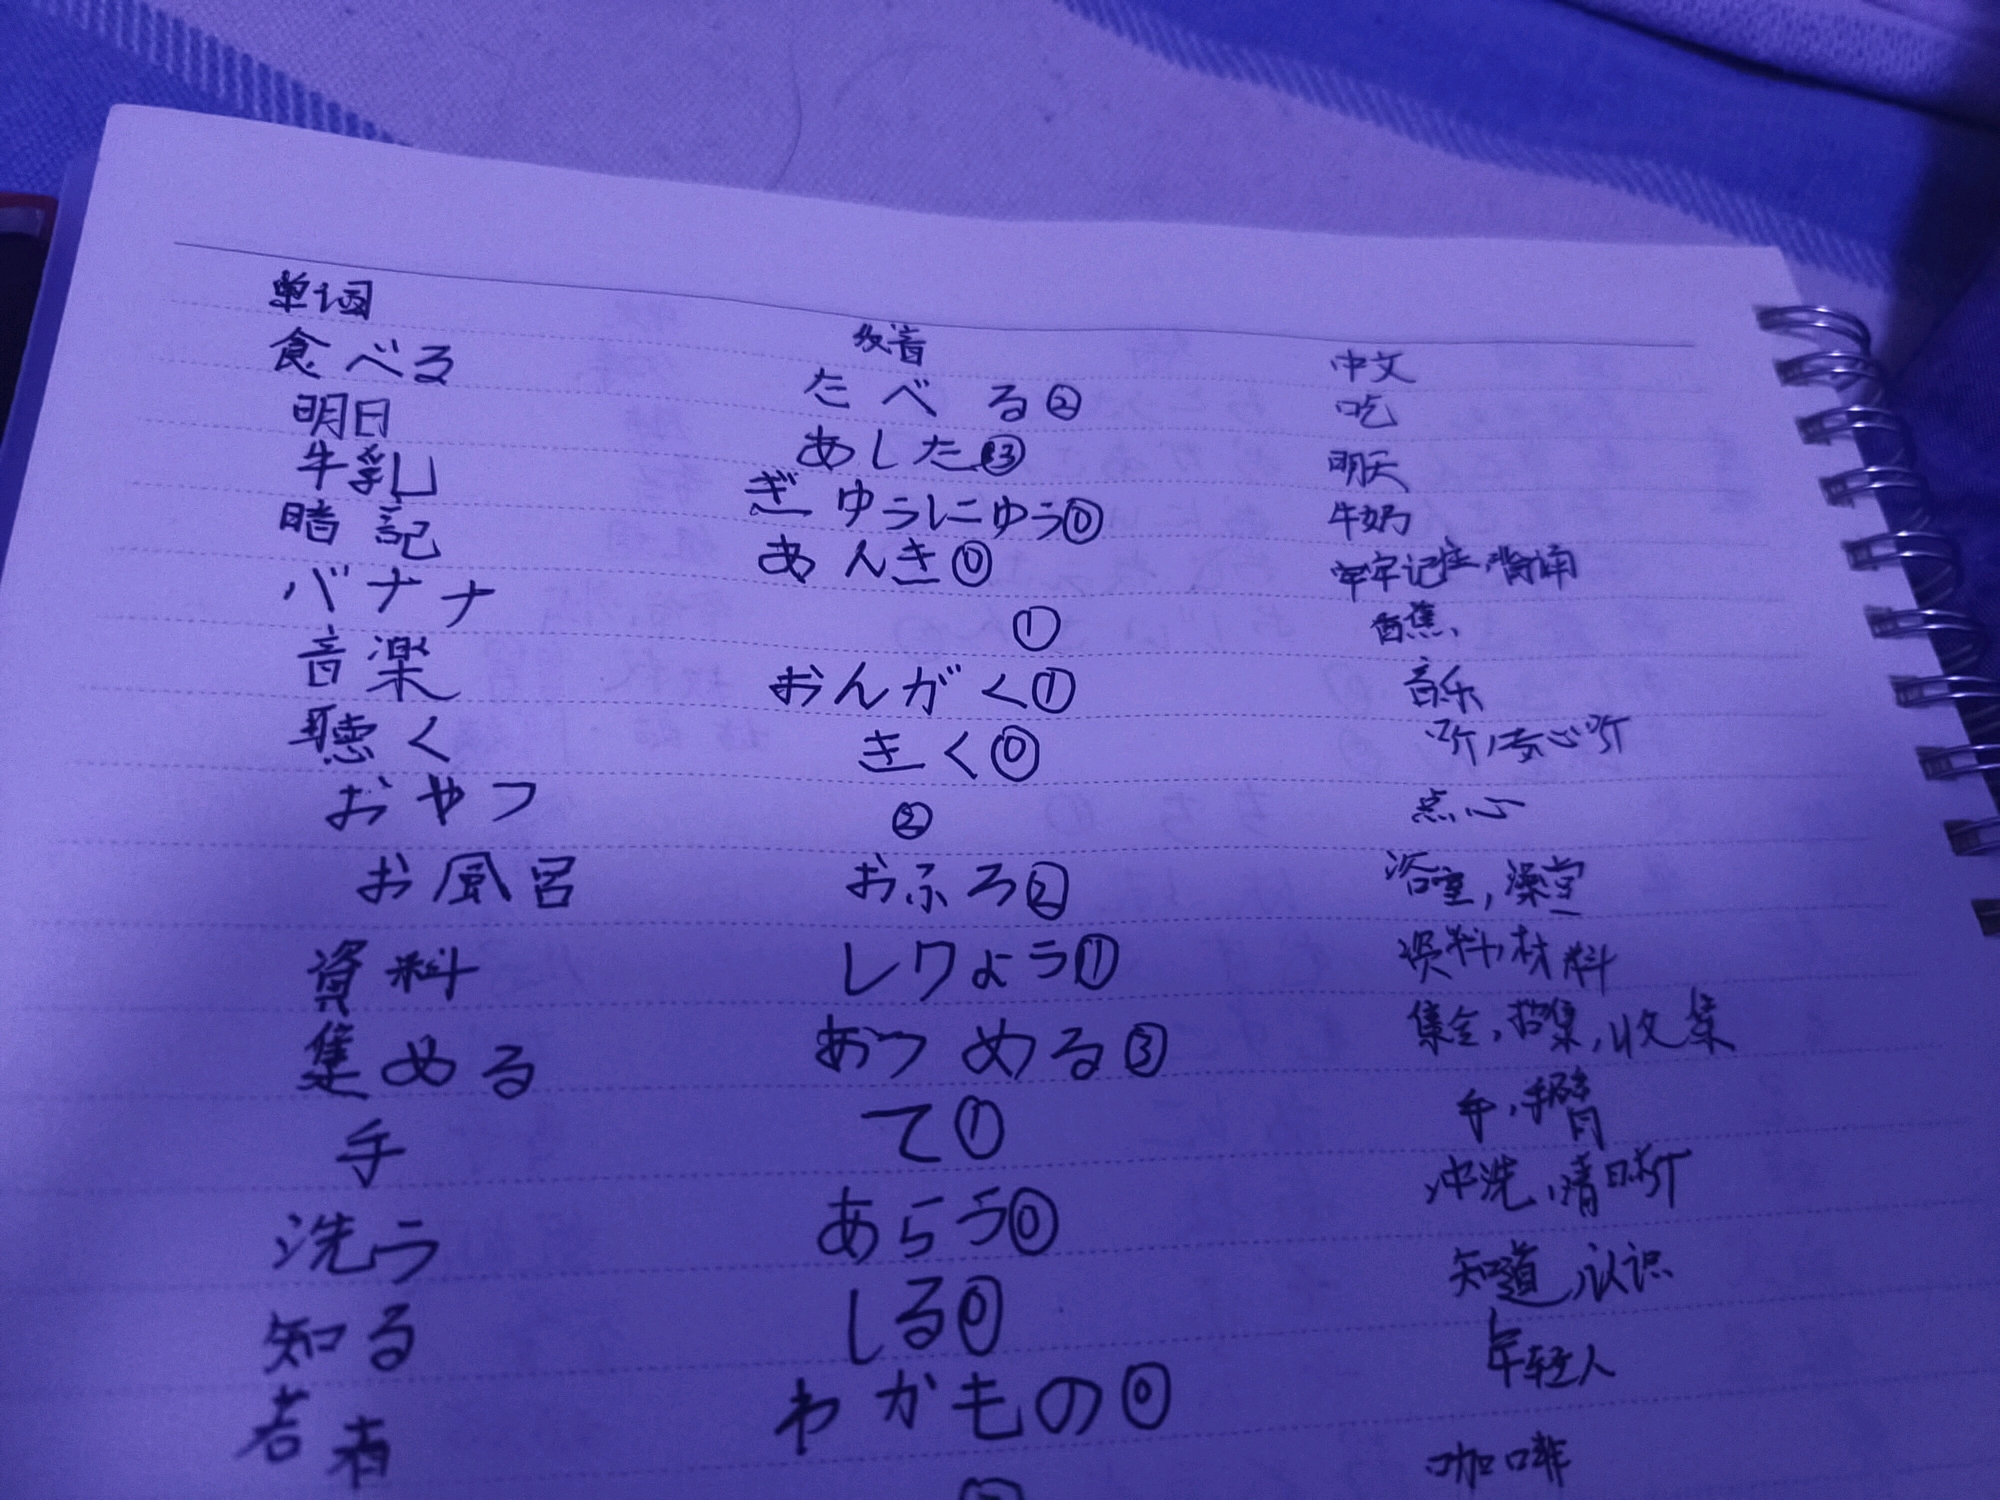 单词 发音 中文
食べる たべる② 吃
明日 あした③ 明天
牛乳 ぎゅうにゅう⓪ 牛奶
暗記 あんき⓪ 牢牢记住,背诵
バナナ ① 香蕉
音楽 おんがく① 音乐
聴く きく⓪ 听,专心听
おやつ ② 点心
お風呂 おふろ② 浴室,澡堂
資料 しりょう① 资料,材料
集める あつめる③ 集合,招集,收集
手 て① 手,手臂
洗う あらう⓪ 冲洗,清晰
知る しる⓪ 知道,认识
若者 わかもの⓪ 年轻人
咖啡